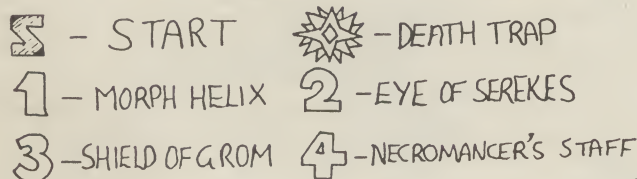 S - START
- DEATH TRAP
1 - MORPH HELIX
2 - EYE OF SEREKES
3 - SHIELD OF GROM
4 - NECROMANCER'S STAFF